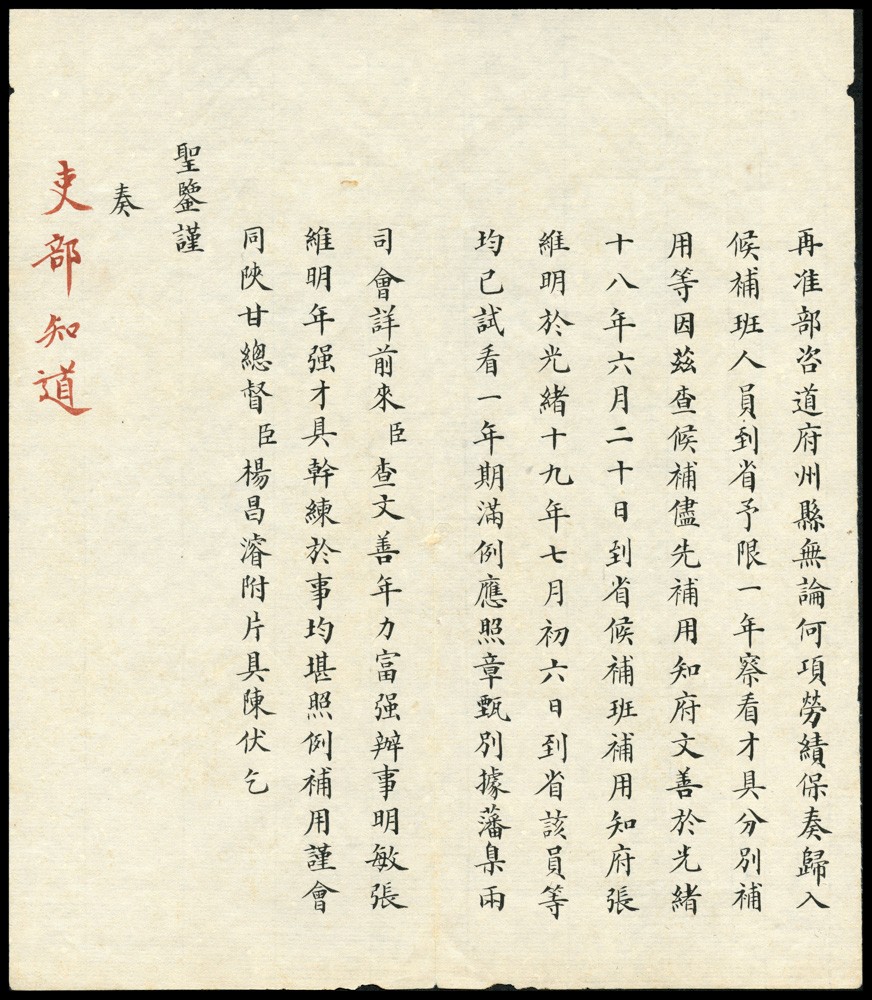 再准部咨道府州縣無論何項勞績保奏歸入
候補班人員到省予限一年察看才具分別補
用等因茲查候補儘先補用知府文善於光緒
十八年六月二十日到省候補班補用知府張
維明於光緒十九年七月初六日到省該員等
均已試看一年期滿例應照章甄別據藩臬兩
司會詳前來臣查文善年力富强辦事明敏張
維明年强才具幹練於事均堪照例補用謹會
同陝甘總督臣楊昌濬附片具陳伏乞
聖鑒謹
奏
吏部知道